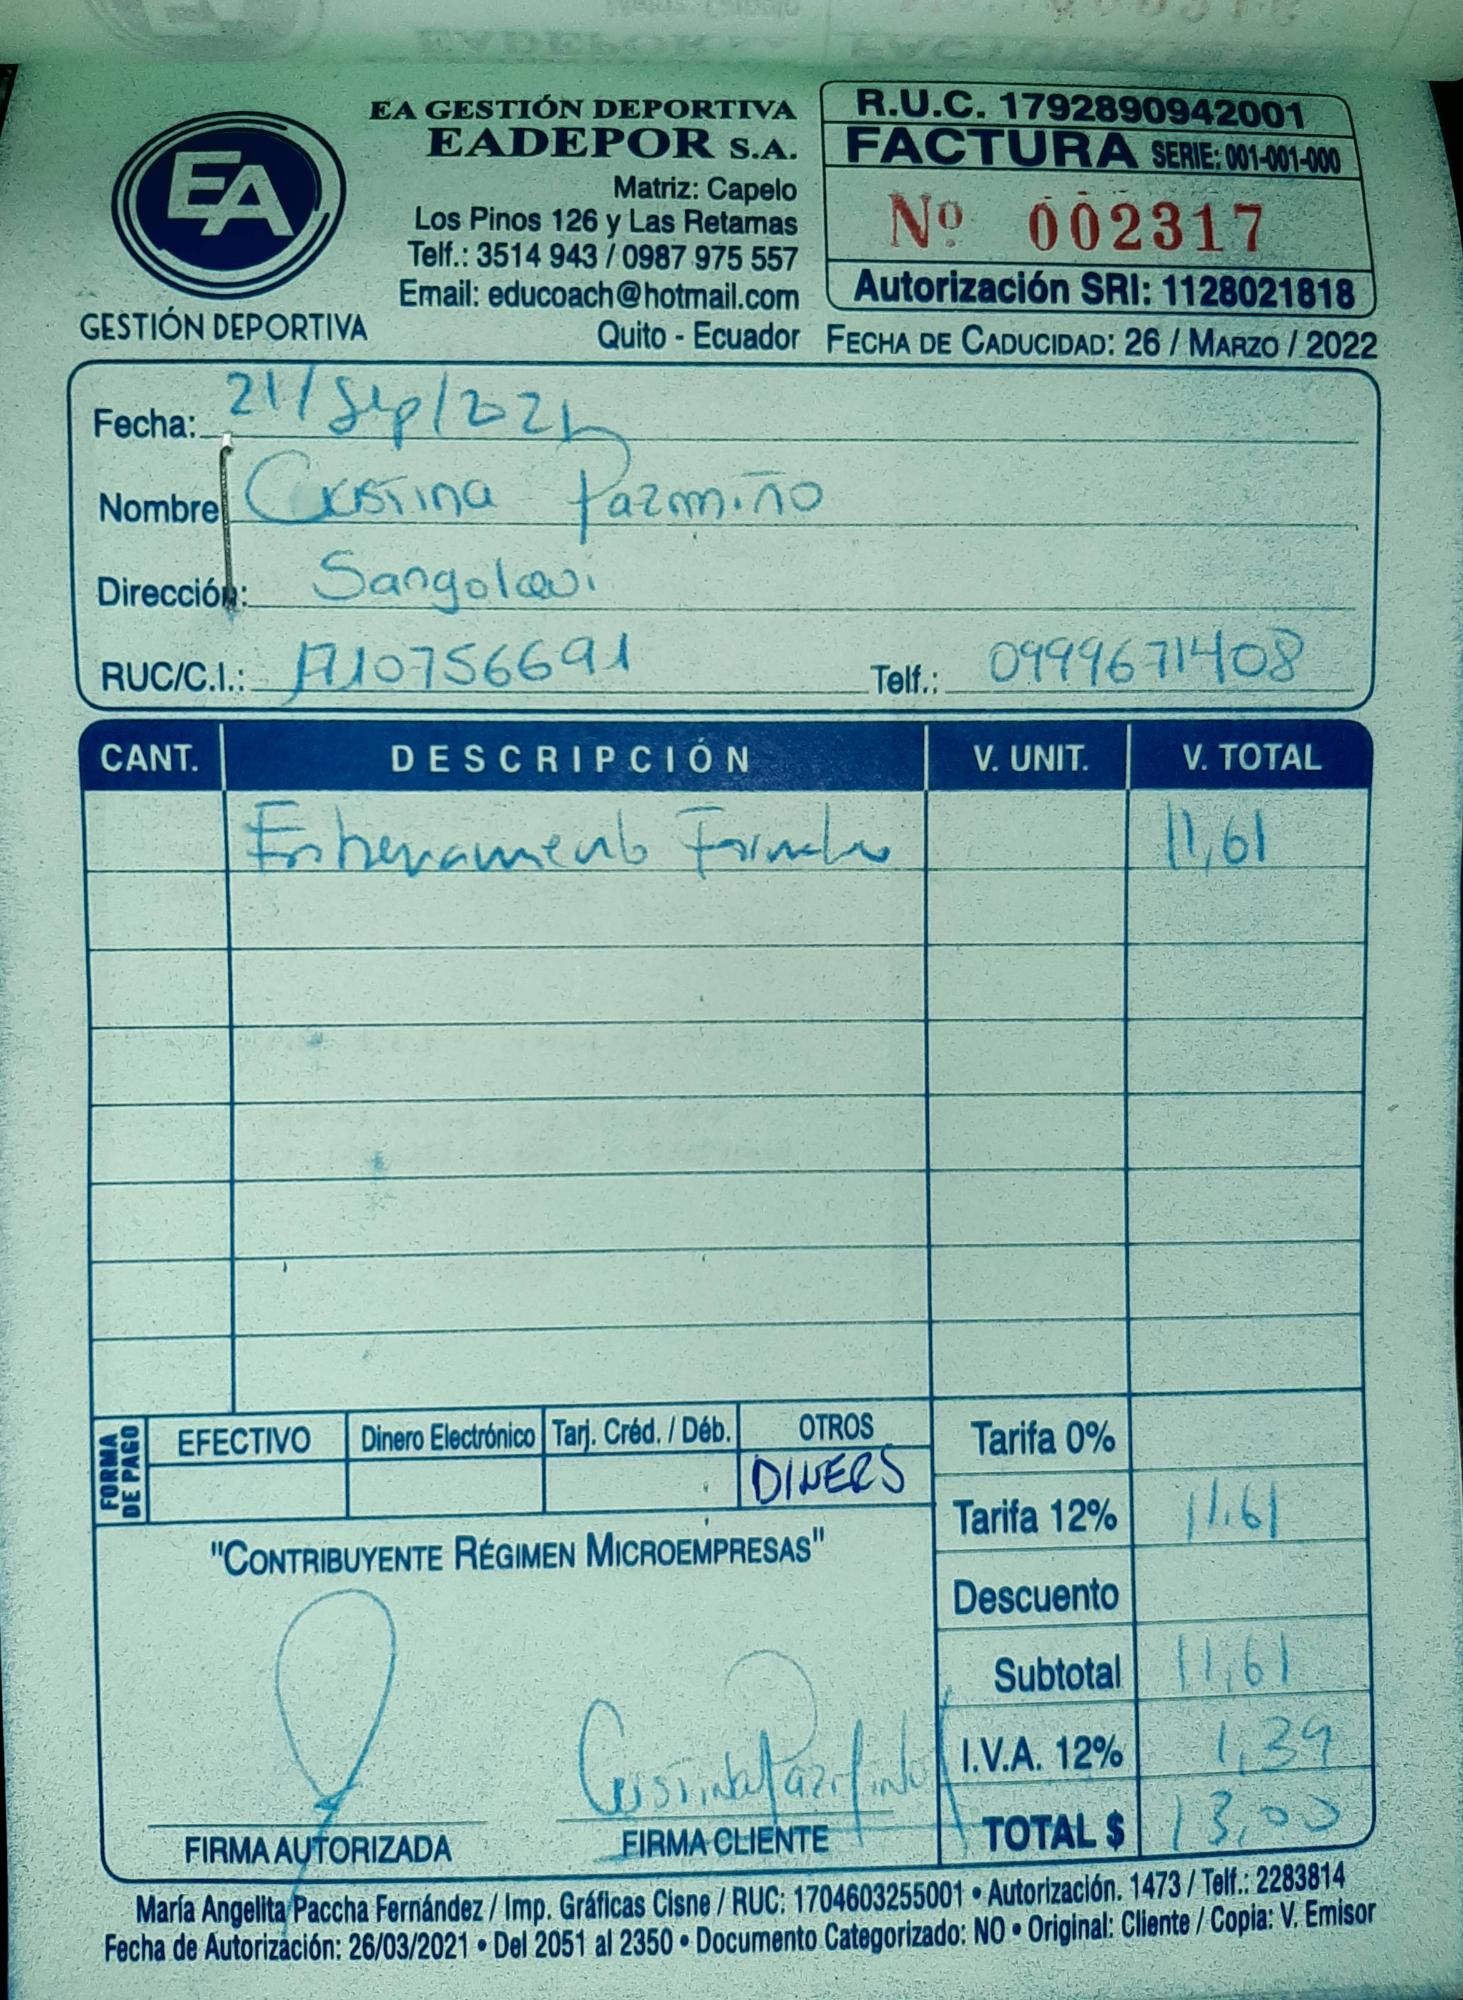 EA GESTIÓN DEPORTIVA
EADEPOR S.A.
Matriz: Capelo
Los Pinos 126 y Las Retamas
Telf.: 3514 943 / 0987 975 557
Email: educoach@hotmail.com
Quito - Ecuador
EA
GESTIÓN DEPORTIVA
R.U.C. 1792890942001
FACTURA SERIE: 001-001-000
Nº 002317
Autorización SRI: 1128021818
FECHA DE CADUCIDAD: 26 / MARZO / 2022
Fecha: 21/Sep/2021
Nombre Cristina Pazmiño
Dirección: Sangolqui
RUC/C.I.: 1710756691 Telf.: 0999671408
CANT. DESCRIPCIÓN V. UNIT. V. TOTAL
Entrenamiento 11,61
FORMA DE PAGO
EFECTIVO Dinero Electrónico Tarj. Créd. / Déb. OTROS
DINERS
Tarifa 0%
Tarifa 12% 11.61
Descuento
Subtotal 11,61
I.V.A. 12% 1,39
TOTAL $ 13,00
"CONTRIBUYENTE RÉGIMEN MICROEMPRESAS"
Cristina Pazmiño
FIRMA AUTORIZADA FIRMA CLIENTE
María Angelita Paccha Fernández / Imp. Gráficas Cisne / RUC: 1704603255001 • Autorización. 1473 / Telf.: 2283814
Fecha de Autorización: 26/03/2021 • Del 2051 al 2350 • Documento Categorizado: NO • Original: Cliente / Copia: V. Emisor